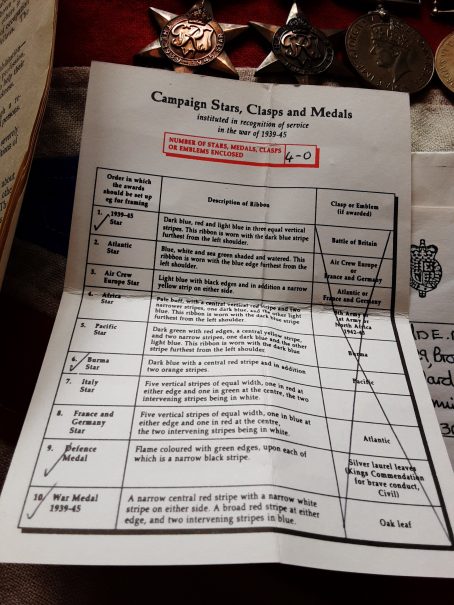 Campaign Stars, Clasps and Medals
instituted in recognition of service
in the war of 1939-45
NUMBER OF STARS, MEDALS, CLASPS
OR EMBLEMS ENCLOSED
4-0
Order in which
the awards
should be set up
eg for framing
Description of Ribbon
Clasp or Emblem
(if awarded)
1. 1939-45
Star
Dark blue, red and light blue in three equal vertical
stripes. This ribbon is worn with the dark blue stripe
furthest from the left shoulder.
Battle of Britain
2. Atlantic
Star
Blue, white and sea green shaded and watered. This
ribbbon is worn with the blue edge furthest from the
left shoulder.
Air Crew Europe
or
France and Germany
3. Air Crew
Europe Star
Light blue with black edges and in addition a narrow
yellow strip on either side.
Atlantic or
France and Germany
4. Africa
Star
Pale buff, with a central vertical red stripe and two
narrower stripes, one dark blue, and the other light
blue. This ribbon is worn with the dark blue stripe
furthest from the left shoulder.
8th Army or
1st Army or
North Africa
1942-43
5. Pacific
Star
Dark green with red edges, a central yellow stripe,
and two narrow stripes, one dark blue and the other
light blue. This ribbon is worn with the dark blue
stripe furthest from the left shoulder.
Burma
6. Burma
Star
Dark blue with a central red stripe and in addition
two orange stripes.
Pacific
7. Italy
Star
Five vertical stripes of equal width, one in red at
either edge and one in green at the centre, the two
intervening stripes being in white.
8. France and
Germany
Star
Five vertical stripes of equal width, one in blue at
either edge and one in red at the centre,
the two intervening stripes being in white.
Atlantic
9. Defence
Medal
Flame coloured with green edges, upon each of
which is a narrow black stripe.
Silver laurel leaves
(Kings Commendation
for brave conduct,
Civil)
10. War Medal
1939-45
A narrow central red stripe with a narrow white
stripe on either side. A broad red stripe at either
edge, and two intervening stripes in blue.
Oak leaf